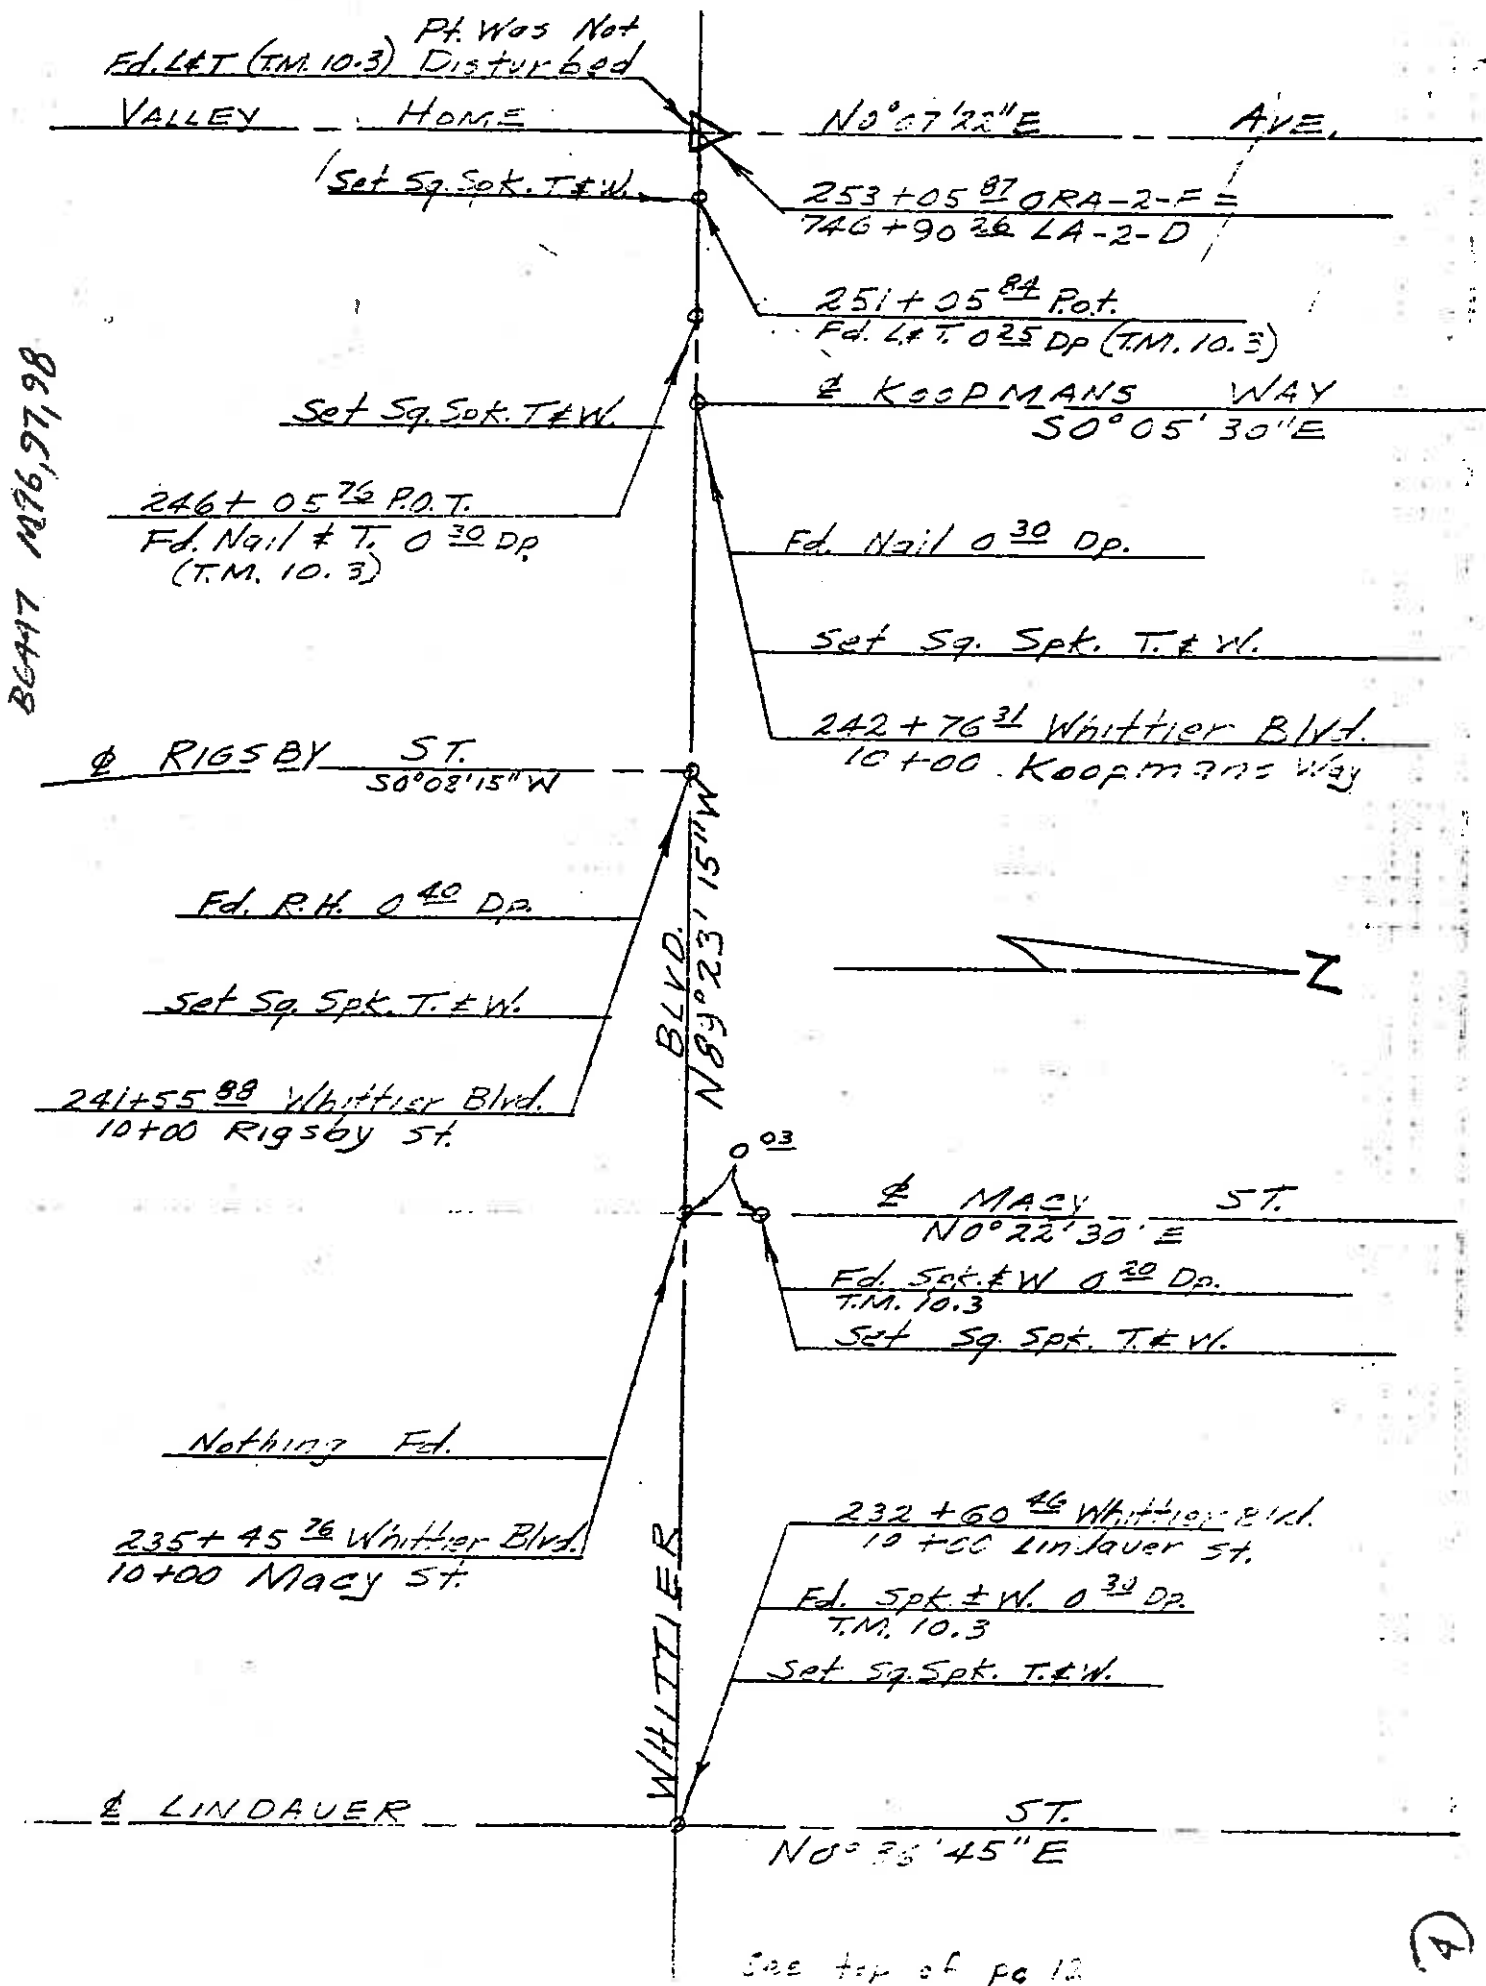 Pt. Was Not
Fd. L&T. (T.M. 10.3) Disturbed
VALLEY HOME N0°07'22"E AVE.
Set Sq. Spk. T&W.
253+05 87 ORA-2-F =
746+90 26 LA-2-D
251+05 84 P.o.t.
Fd. L&T. 0 25 Dp (T.M. 10.3)
℄ KOOPMANS WAY
S0°05'30"E
Set Sq. Spk. T&W.
246+05 76 P.O.T.
Fd. Nail & T. 0 30 Dp
(T.M. 10.3)
Fd. Nail 0 30 Dp.
Set Sq. Spk. T.&W.
242+76 31 Whittier Blvd.
10+00 Koopmans Way
℄ RIGSBY ST.
S0°08'15"W
Fd. R.H. 0 40 Dp.
Set Sq. Spk. T.&W.
241+55 88 Whittier Blvd.
10+00 Rigsby St.
WHITTIER BLVD.
N89°23'15"W
Z
0 03
℄ MACY ST.
N0°22'30"E
Fd. Spk.&W 0 20 Dp.
T.M. 10.3
Set Sq. Spk. T&W.
Nothing Fd.
235+45 76 Whittier Blvd.
10+00 Macy St.
232+60 46 Whittier Blvd.
10+00 Lindauer St.
Fd. Spk & W. 0 30 Dp.
T.M. 10.3
Set Sq. Spk. T.&W.
℄ LINDAUER ST.
N0°36'45"E
See top of pg 12
4